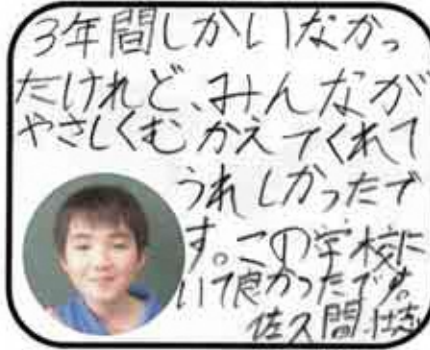 3年間しかいなかっ
たけれど、みんなが
やさしくむかえてくれて
うれしかったで
す。この学校に
いて良かったです。
佐久間